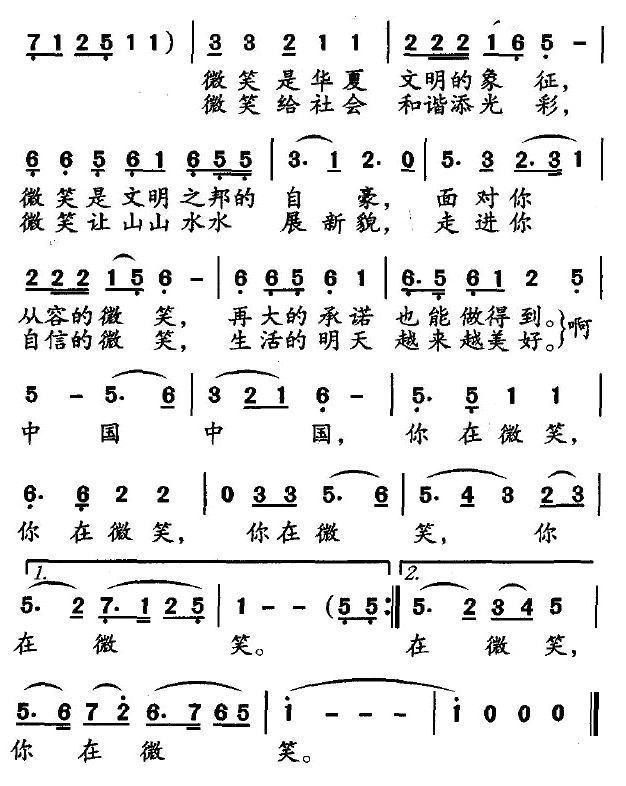 7 1 2 5 1 1 ) | 3 3 2 1 1 | 2 2 2 2 1 6 5 - |
微笑是华夏 文明的象征,
微笑给社会 和谐添光彩,
6 6 5 6 1 6 5 5 | 3. 1 2. 0 | 5. 3 2. 3 1 |
微笑是文明之邦的 自豪, 面对你
微笑让山山水水 展新貌, 走进你
2 2 2 2 1 5 6 - | 6 6 5 6 1 | 6. 5 6 1 2 5 |
从容的微笑, 再大的承诺 也能做得到。} 啊
自信的微笑, 生活的明天 越来越美好。}
5 - 5. 6 | 3 2 1 6 - | 5. 5 1 1 |
中国 中国, 你在微笑,
6. 6 2 2 | 0 3 3 5. 6 | 5. 4 3 2 3 |
你在微笑, 你在微 笑, 你
1. 2.
5. 2 7. 1 2 5 | 1 - - ( 5 5 :| 5. 2 3 4 5 |
在微 笑。 在微笑,
5. 6 7 2 6. 7 6 5 | i - - - | i 0 0 0 ‖
你在微 笑。